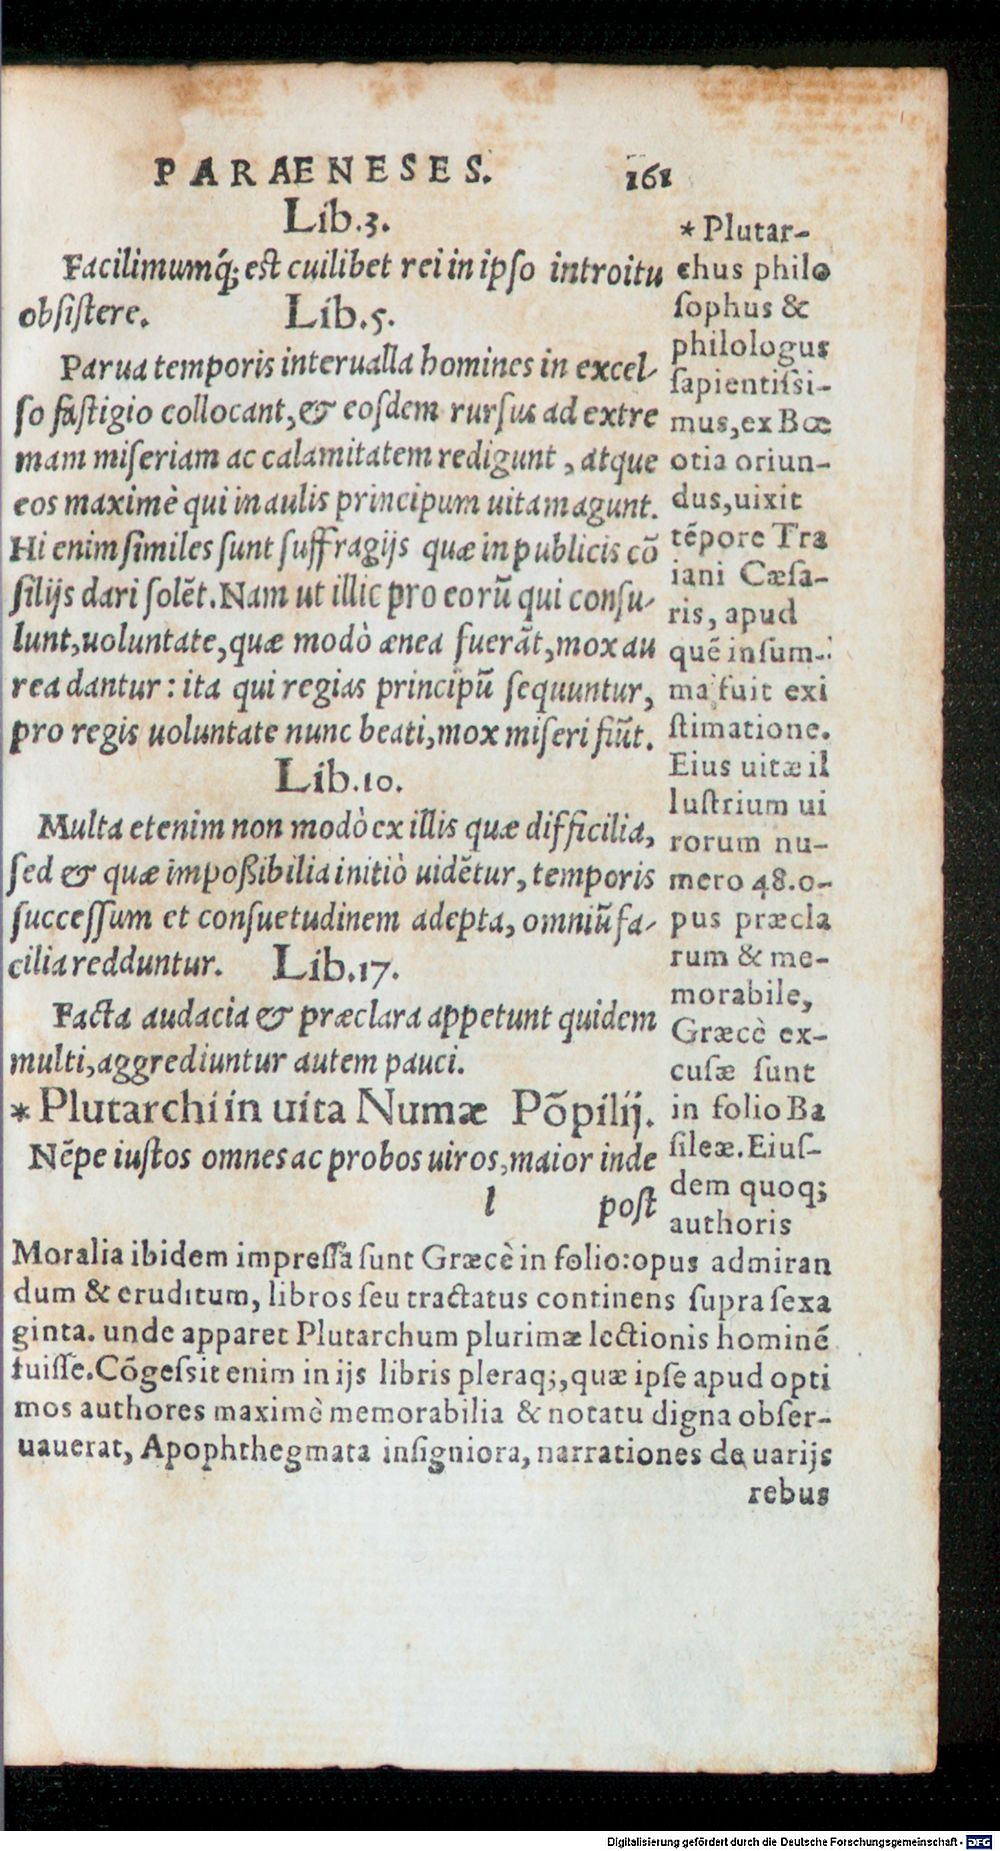 PARAENESES. 161
Lib.3.
Facilimumq́; est cuilibet rei in ipso introitu
obsistere. Lib.5.
Parua temporis interualla homines in excel-
so fastigio collocant, & eosdem rursus ad extre
mam miseriam ac calamitatem redigunt, atque
eos maximè qui in aulis principum uitam agunt.
Hi enim similes sunt suffragijs quæ in publicis cõ
silijs dari solẽt. Nam ut illic pro eorũ qui consu-
lunt, uoluntate, quæ modò ænea fuerãt, mox au
rea dantur: ita qui regias principũ sequuntur,
pro regis uoluntate nunc beati, mox miseri fiũt.
Lib.10.
Multa etenim non modò ex illis quæ difficilia,
sed & quæ impoßibilia initiò uidẽtur, temporis
successum et consuetudinem adepta, omniũ fa-
cilia redduntur. Lib.17.
Facta audacia & præclara appetunt quidem
multi, aggrediuntur autem pauci.
* Plutarchi in uita Numæ Põpilij.
Nẽpe iustos omnes ac probos uiros, maior inde
l post
* Plutar-
chus philo
sophus &
philologus
sapientissi-
mus, ex Bœ
otia oriun-
dus, uixit
tẽpore Tra
iani Cæsa-
ris, apud
quẽ in sum-
ma fuit exi
stimatione.
Eius uitæ il
lustrium ui
rorum nu-
mero 48. o-
pus præcla
rum & me-
morabile,
Græcè ex-
cusæ sunt
in folio Ba
sileæ. Eius-
dem quoq;
authoris
Moralia ibidem impressa sunt Græcè in folio: opus admiran
dum & eruditum, libros seu tractatus continens supra sexa
ginta. unde apparet Plutarchum plurimæ lectionis hominẽ
fuisse. Cõgessit enim in ijs libris pleraq;, quæ ipse apud opti
mos authores maximè memorabilia & notatu digna obser-
uauerat, Apophthegmata insigniora, narrationes de uarijs
rebus
Digitalisierung gefördert durch die Deutsche Forschungsgemeinschaft - DFG